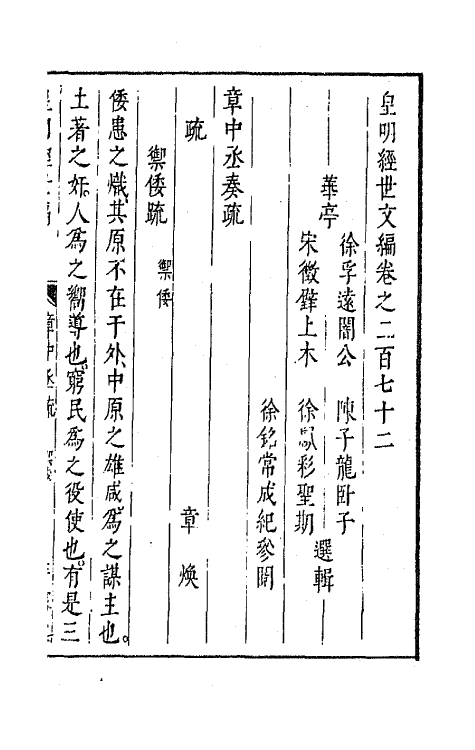 皇明經世文編卷之二百七十二
華亭
徐孚遠闇公 陳子龍臥子
宋徵璧上木 徐鳳彩聖期
選輯
徐銘常成紀參閱
章中丞奏疏
疏 章煥
禦倭疏 禦倭
倭患之熾其原不在于外中原之雄咸爲之謀主也。
土著之奸人爲之嚮導也。窮民爲之役使也。有是三
章中丞疏